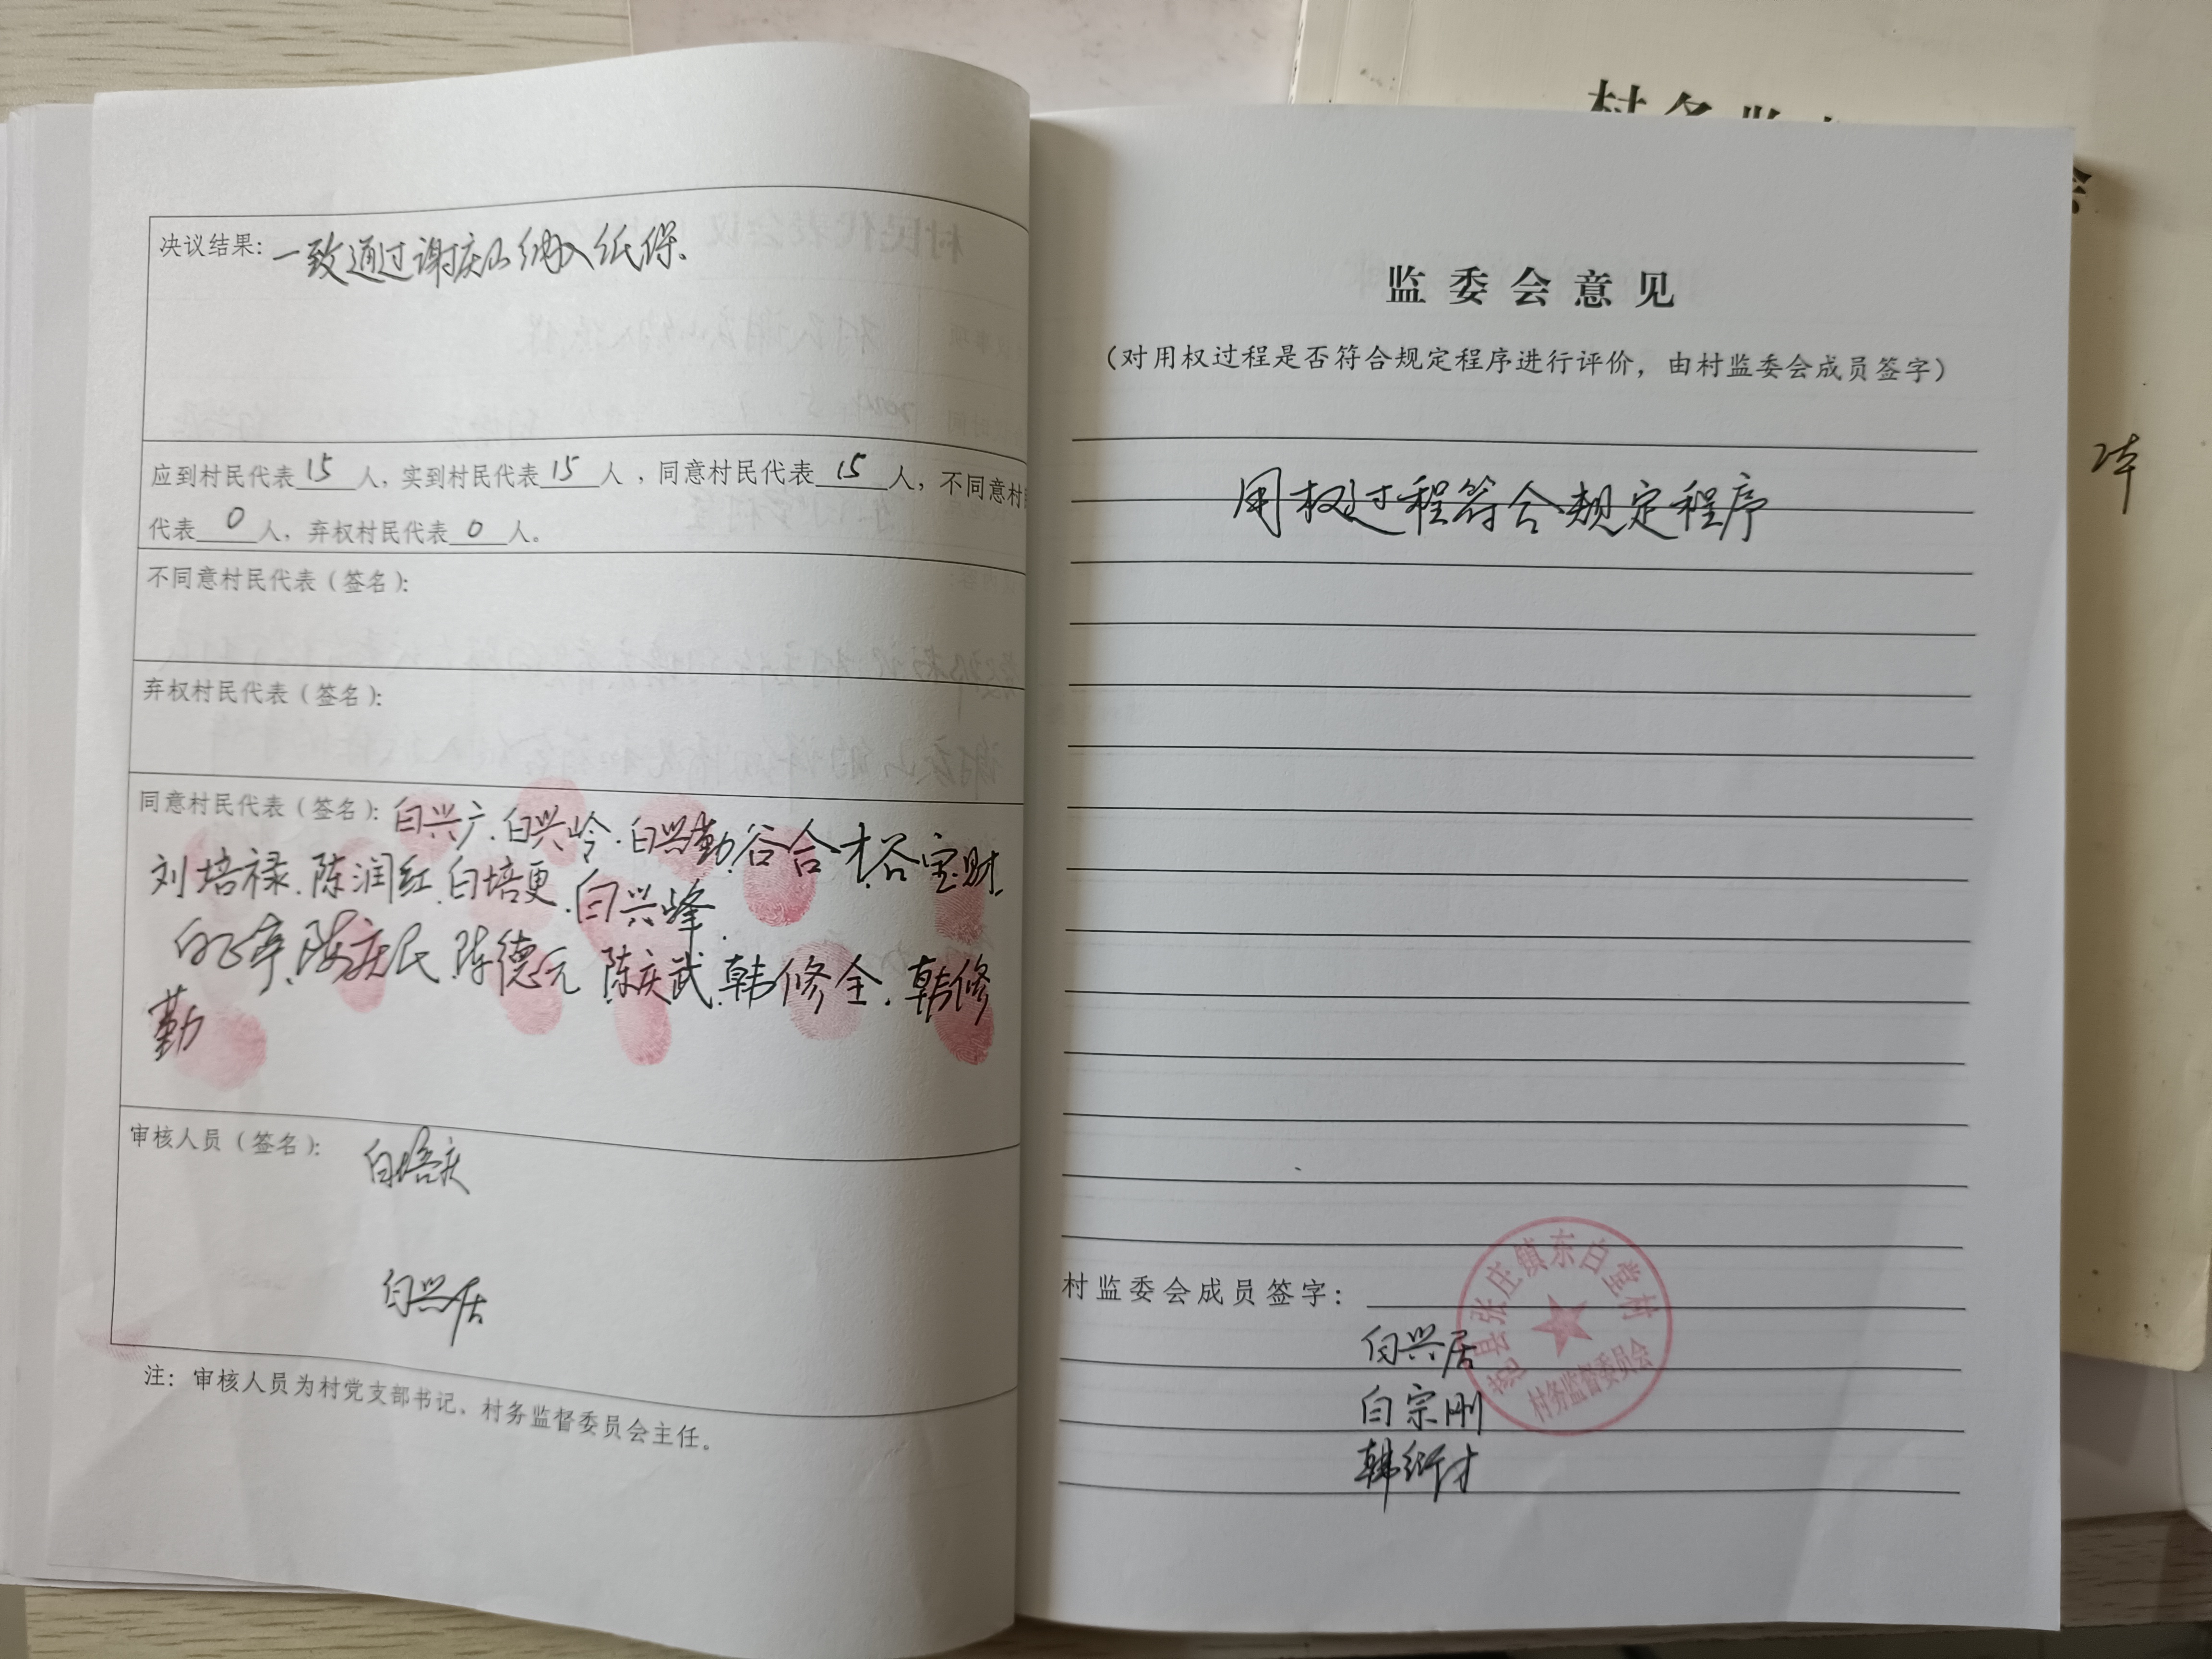 决议结果：一致通过谢庆山纳入低保.
应到村民代表15人，实到村民代表15人，同意村民代表15人，不同意村民
代表0人，弃权村民代表0人。
不同意村民代表（签名）：
弃权村民代表（签名）：
同意村民代表（签名）：白兴广.白兴岭.白兴勤.谷合才.谷宝财.
刘培禄.陈润红.白培更.白兴峰.
陈庆民.陈德元.陈庆武.韩修全.韩修
勤
审核人员（签名）：白培庆
白兴居
注：审核人员为村党支部书记、村务监督委员会主任。
监委会意见
（对用权过程是否符合规定程序进行评价，由村监委会成员签字）
用权过程符合规定程序
村监委会成员签字：
白兴居
白宗刚
韩衍才
县张庄镇东白堂村
村务监督委员会